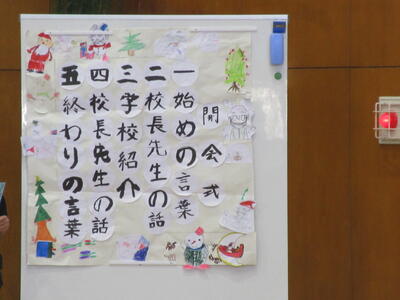 開会式
一始めの言葉
二校長先生の話
三学校紹介
四校長先生の話
五終わりの言葉